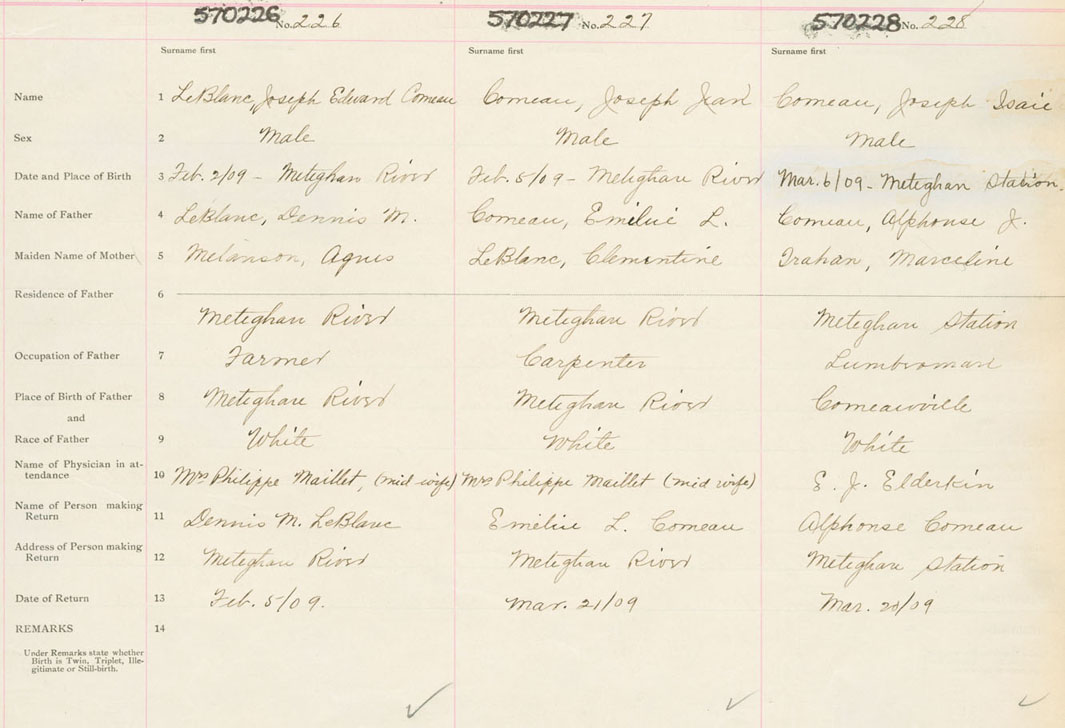 570226 No. 226 570227 No. 227 570228 No. 228
Surname first Surname first Surname first
Name 1 LeBlanc, Joseph Edward Comeau Comeau, Joseph Jean Comeau, Joseph Isaie
Sex 2 Male Male Male
Date and Place of Birth 3 Feb. 2/09 - Meteghan River Feb. 5/09 - Meteghan River Mar. 6/09 - Meteghan Station.
Name of Father 4 LeBlanc, Dennis M. Comeau, Emilie L. Comeau, Alphonse J.
Maiden Name of Mother 5 Melanson, Agnes LeBlanc, Clementine Trahan, Marceline
Residence of Father 6
Meteghan River Meteghan River Meteghan Station
Occupation of Father 7 Farmer Carpenter Lumberman
Place of Birth of Father 8 Meteghan River Meteghan River Comeauville
and
Race of Father 9 White White White
Name of Physician in at-
tendance 10 Mrs Philippe Maillet, (mid wife) Mrs Philippe Maillet (mid wife) E. J. Elderkin
Name of Person making
Return 11 Dennis M. LeBlanc Emilie L. Comeau Alphonse Comeau
Address of Person making
Return 12 Meteghan River Meteghan River Meteghan Station
Date of Return 13 Feb. 5/09. Mar. 21/09 Mar. 20/09
REMARKS 14
Under Remarks state whether
Birth is Twin, Triplet, Ille-
gitimate or Still-birth.